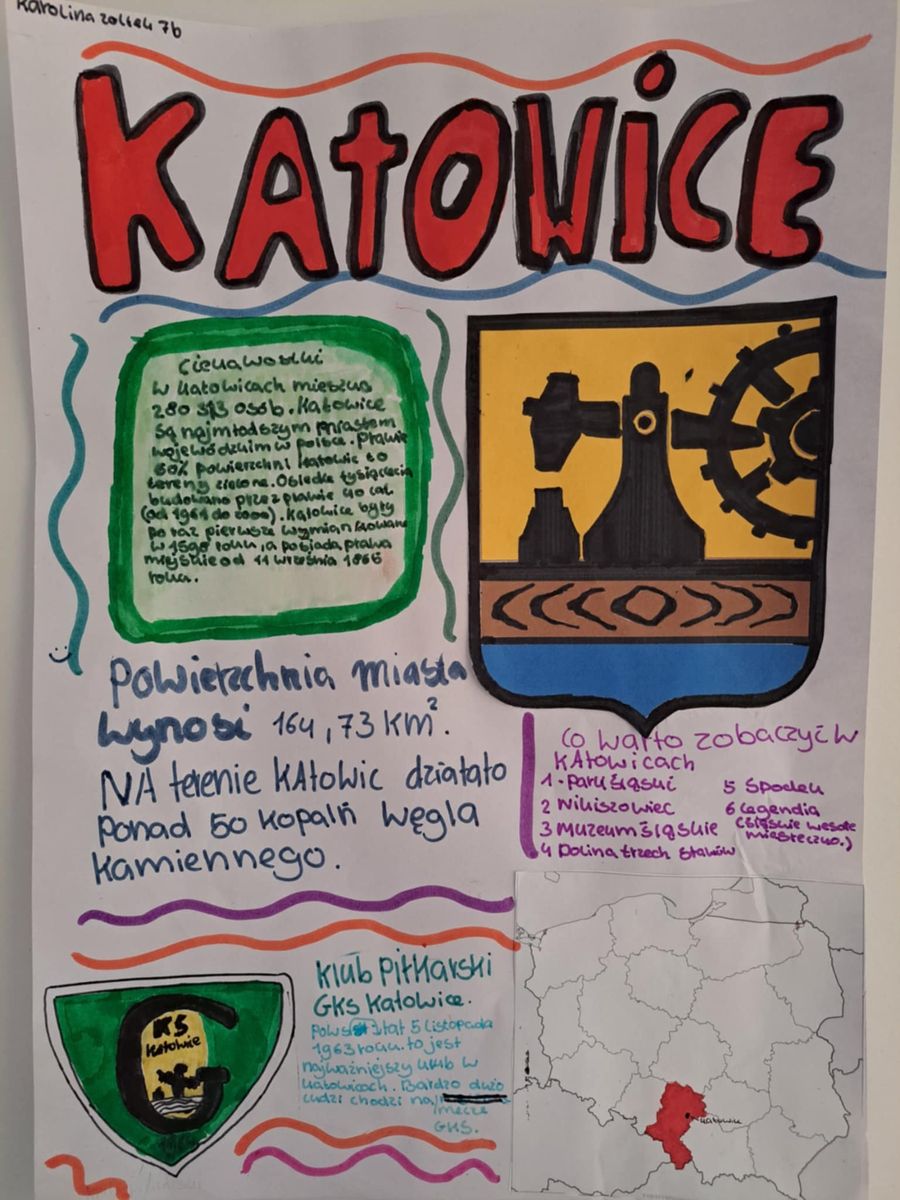 Karolina żołtek 7b
KATOWICE
Ciekawostki
W Katowicach mieszka
280 313 osób. Katowice
są najmłodszym miastem
wojewódzkim w Polsce. Prawie
60% powierzchni Katowic to
tereny zielone. Osiedle tysiąclecia
budowano przez prawie 40 lat
(od 1961 do 2000). Katowice były
po raz pierwszy wymiankowane
w 1598 roku, a posiada prawa
miejskie od 11 września 1865
roku.
Powierzchnia miasta
wynosi 164,73 km².
NA terenie KAtowic działało
ponad 50 kopalń węgla
kamiennego.
Co warto zobaczyć w
KAtowicach
1. Park śląski
2 Nikiszowiec
3 Muzeum śląskie
4 Dolina trzech stawów
5 Spodek
6 Legendia
(śląskie wesołe
miasteczko.)
Klub PiłKarski
GKS Katowice.
5 listopada
1963 roku. to jest
najważniejszy klub w
Katowicach. Bardzo dużo
ludzi chodzi na
mecze
GKS.
KS
Katowie
G
Katowice